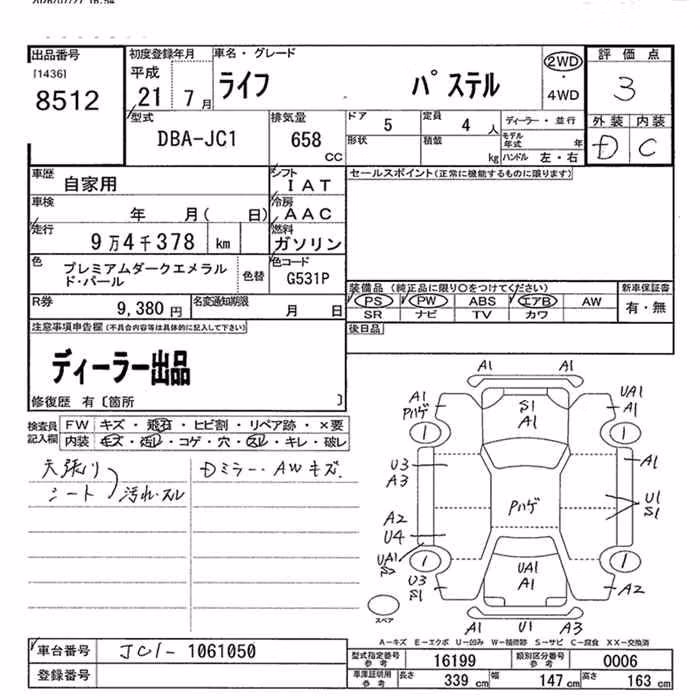 2026/07/27 16:54
出品番号 初度登録年月 車名・グレード 評価点
[1436] 8512
平成 21年 7月
ライフ パステル
2WD・4WD
3
型式 DBA-JC1
排気量 658 CC
ドア 5 定員 4 人
ディーラー・並行
外装 内装
D C
形状 積載 kg
モデル年式 年
ハンドル 左・右
車歴 自家用
シフト IAT
セールスポイント(正常に機能するものに限ります)
車検 年 月( 日)
冷房 AAC
走行 9万4千378 km
燃料 ガソリン
色 プレミアムダークエメラルド・パール
色替
色コード G531P
装備品 (純正品に限り○をつけてください) 新車保証書
PS PW ABS エアB AW
有・無
SR ナビ TV カワ
R券 9,380 円
名変通知期限 月 日
後日品
注意事項申告欄(不具合内容等は具体的に記入して下さい)
ディーラー出品
修復歴 有〔箇所 〕
検査員記入欄
FW キズ・飛石・ヒビ割・リペア跡・×要
内装 キズ・汚れ・コゲ・穴・スレ・キレ・破レ
天張り
シート 汚れ・スレ
Dミラー・AWキズ.
A1 A1
A1 Pハゲ
S1 A1
UA1 A1
1 1
U3 A3
A1
Pハゲ
U1 S1
A2 U4
UA1
1 1
U3 S1
UA1 A1
A2
スペア
A1 U1 A3
A-キズ E-エクボ U-凹み W-補修跡 S-サビ C-腐食 XX-交換済
車台番号 JC1-1061050
型式指定番号 参考 16199
類別区分番号 参考 0006
登録番号
車庫証明用 参考 長さ 339 cm 幅 147 cm 高さ 163 cm